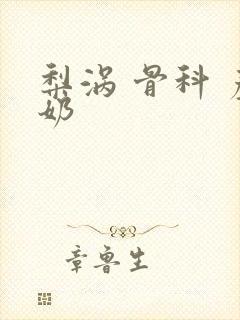 梨涡 骨科
奶
章鲁生